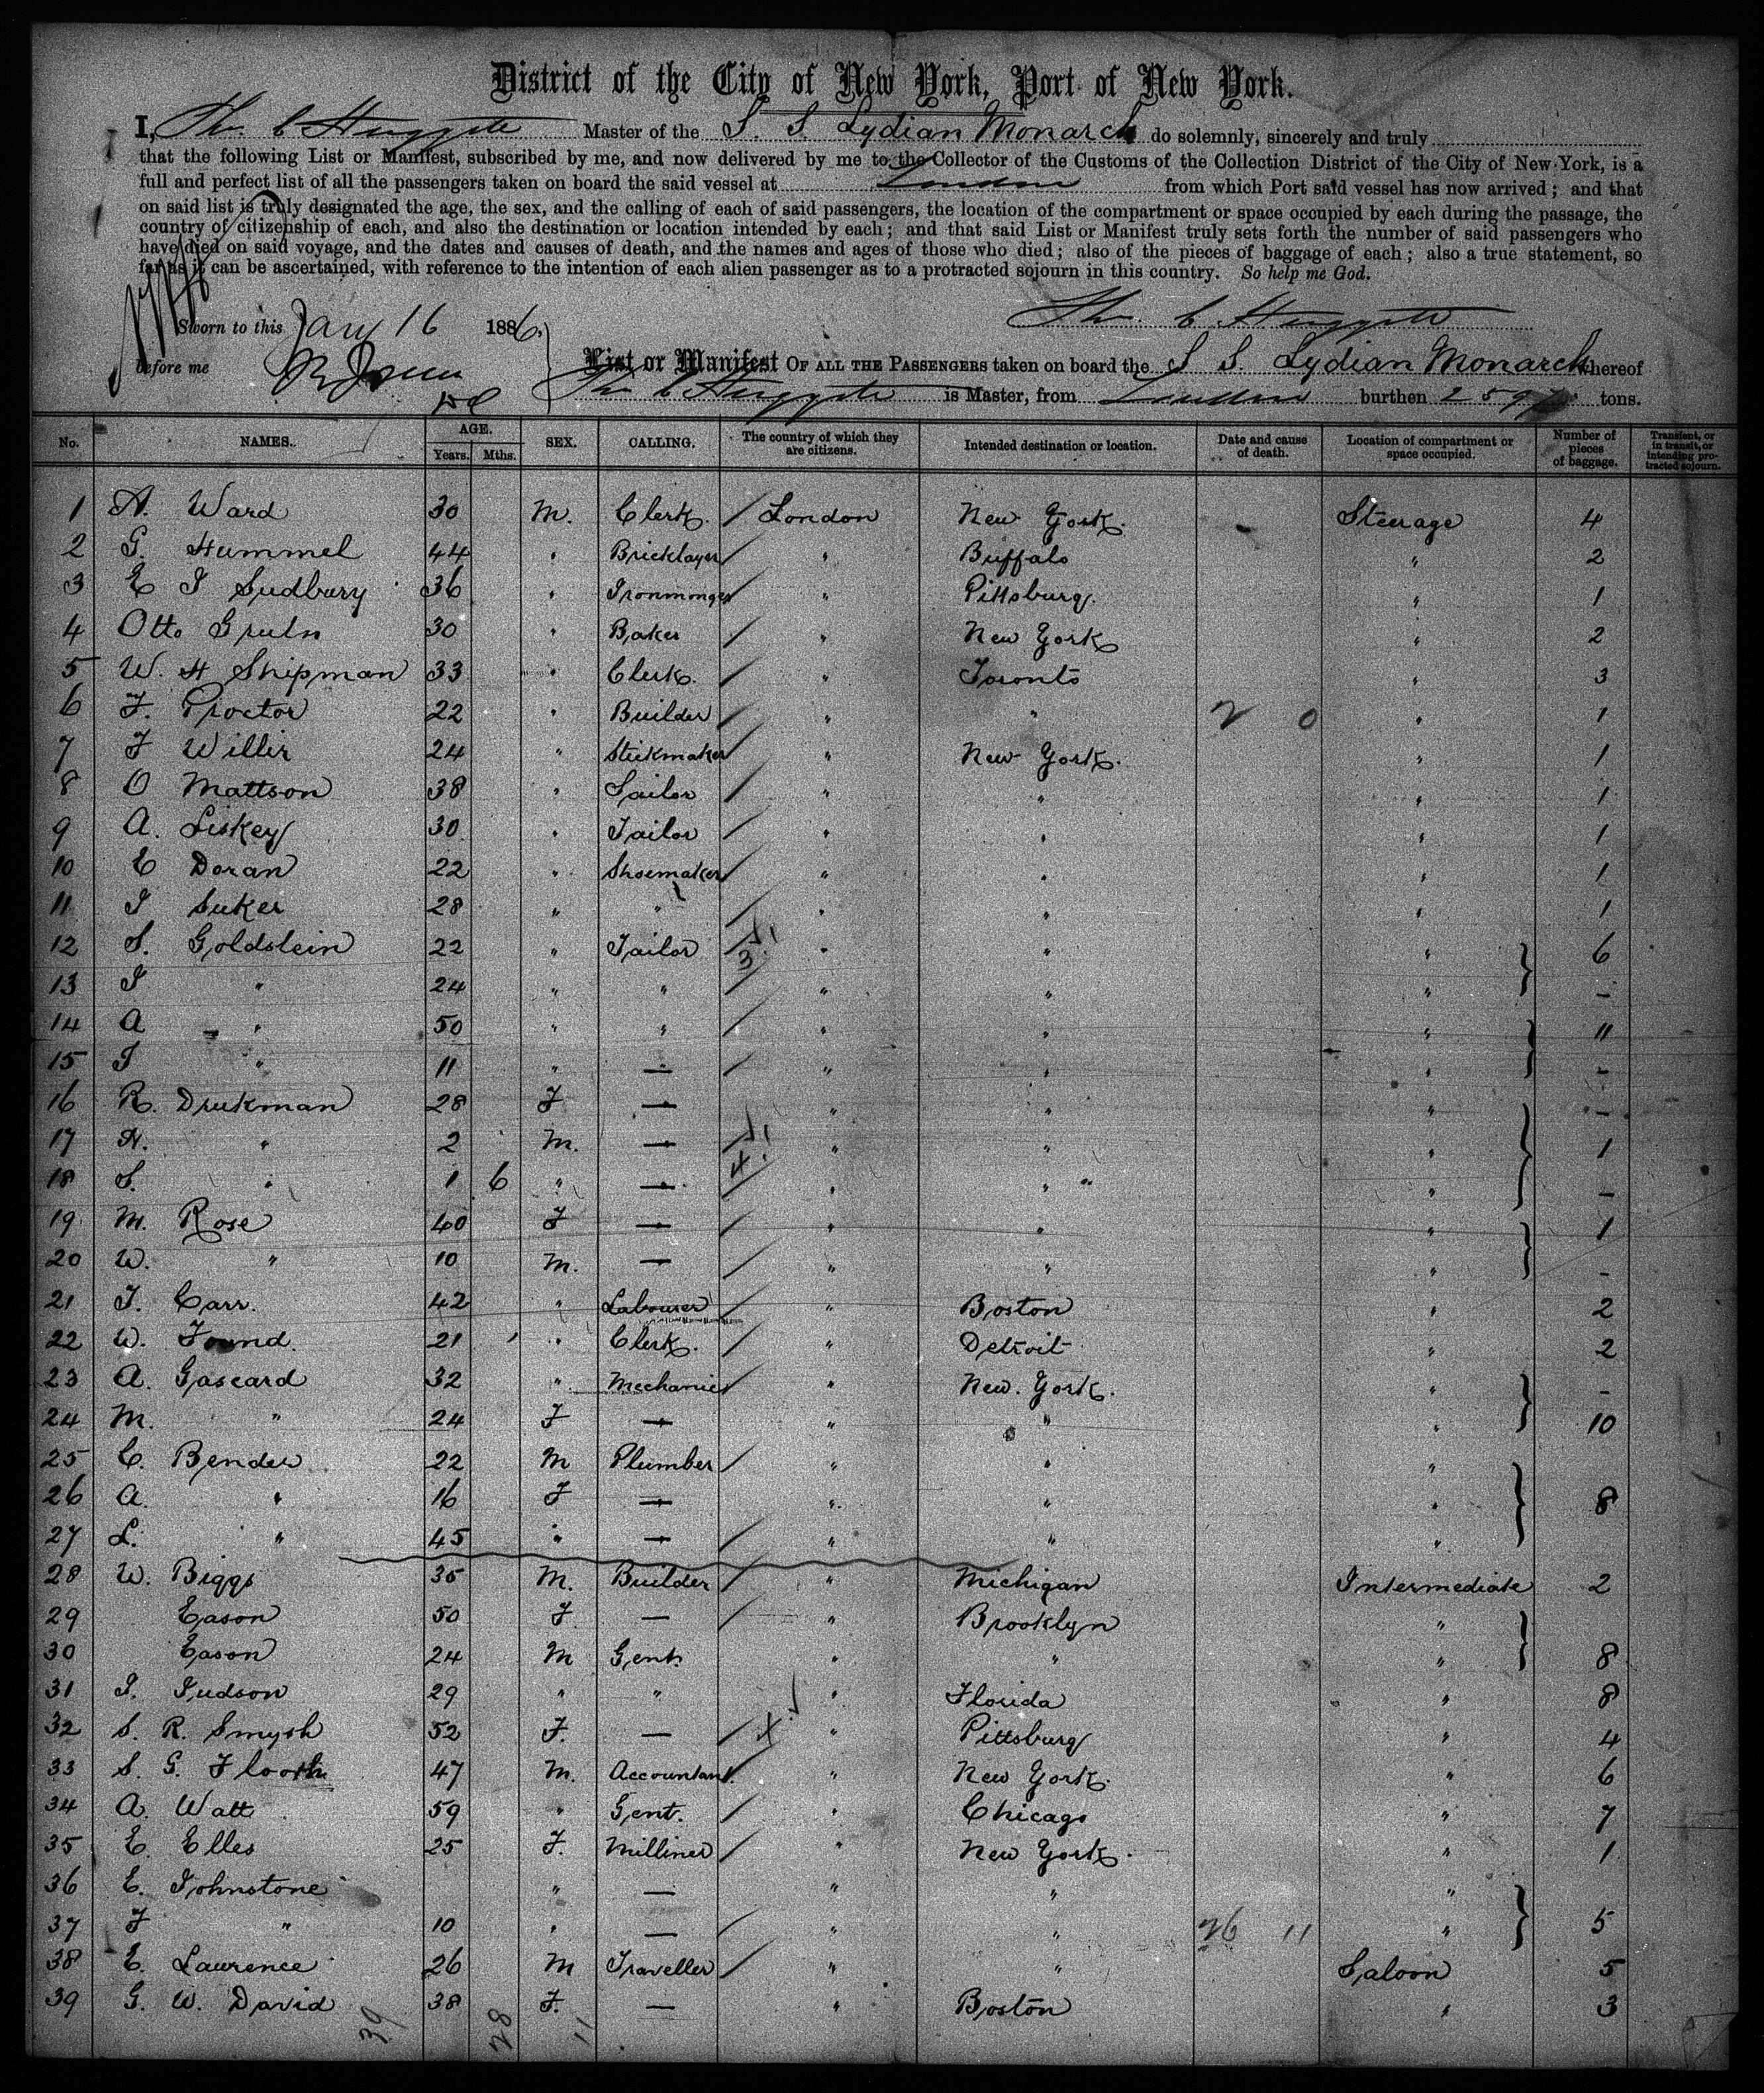 District of the City of New York, Port of New York.
I, Master of the S. S. Lydian Monarch do solemnly, sincerely and truly
that the following List or Manifest, subscribed by me, and now delivered by me to the Collector of the Customs of the Collection District of the City of New York, is a
full and perfect list of all the passengers taken on board the said vessel at London from which Port said vessel has now arrived; and that
on said list is truly designated the age, the sex, and the calling of each of said passengers, the location of the compartment or space occupied by each during the passage, the
country of citizenship of each, and also the destination or location intended by each; and that said List or Manifest truly sets forth the number of said passengers who
have died on said voyage, and the dates and causes of death, and the names and ages of those who died; also of the pieces of baggage of each; also a true statement, so
far as it can be ascertained, with reference to the intention of each alien passenger as to a protracted sojourn in this country. So help me God.
Sworn to this Jany 16 1886.
before me
List or Manifest OF ALL THE PASSENGERS taken on board the S S. Lydian Monarch whereof
is Master, from London burthen tons.
No. NAMES. AGE. Years. Mths. SEX. CALLING. The country of which they are citizens. Intended destination or location. Date and cause of death. Location of compartment or space occupied. Number of pieces of baggage. Transient, or in transit, or intending protracted sojourn.
1 A. Ward 30 M. Clerk. London New York. Steerage 4
2 G. Hummel 44 " Bricklayer " Buffalo " 2
3 E J Sudbury 36 " Ironmonger " Pittsburg. " 1
4 Otto 30 " Baker " New York " 2
5 W. H Shipman 33 " Clerk. " Toronto " 3
6 F. Proctor 22 " Builder " " 2 0 " 1
7 F Willis 24 " Stickmaker " New York. " 1
8 O Mattson 38 " Sailor " " " 1
9 A. Liskey 30 " Tailor " " " 1
10 E Doran 22 " Shoemaker " " " 1
11 I Suker 28 " " " " " 1
12 S. Goldstein 22 " Tailor 3 " " " 6
13 I " 24 " " " " " -
14 A " 50 " " " " " 11
15 I " 11 " — " " " -
16 R. Drukman 28 F — " " " -
17 N. " 2 M. — 4 " " " 1
18 S. " 1 6 " — " " " -
19 M. Rose 40 F — " " " 1
20 W. " 10 M. — " " " -
21 J. Carr. 42 " Labourer " Boston " 2
22 W. Found. 21 " Clerk. " Detroit " 2
23 A. Gascard 32 " Mechanic " New York. " -
24 M. " 24 F — " " " 10
25 C. Bender 22 M Plumber " " "
26 A. " 16 F — " " " 8
27 L. " 45 " — " " "
28 W. Biggs 35 M. Builder " Michigan Intermediate 2
29 Eason 50 F. — " Brooklyn "
30 Eason 24 M Gent. " " " 8
31 I. Judson 29 " " " Florida " 8
32 S. R. Smyth 52 F. — x " Pittsburg " 4
33 S. G. 47 M. Accountant. " New York. " 6
34 A. Watt 59 " Gent. " Chicago " 7
35 E. Elles 25 F. Milliner " New York. " 1
36 E. Johnstone " — " " "
37 F " 10 " — " " 26 11 " 5
38 E. Laurence 26 M Traveller " " Saloon 5
39 G. W. David 38 F. — " Boston " 3
39 28 11